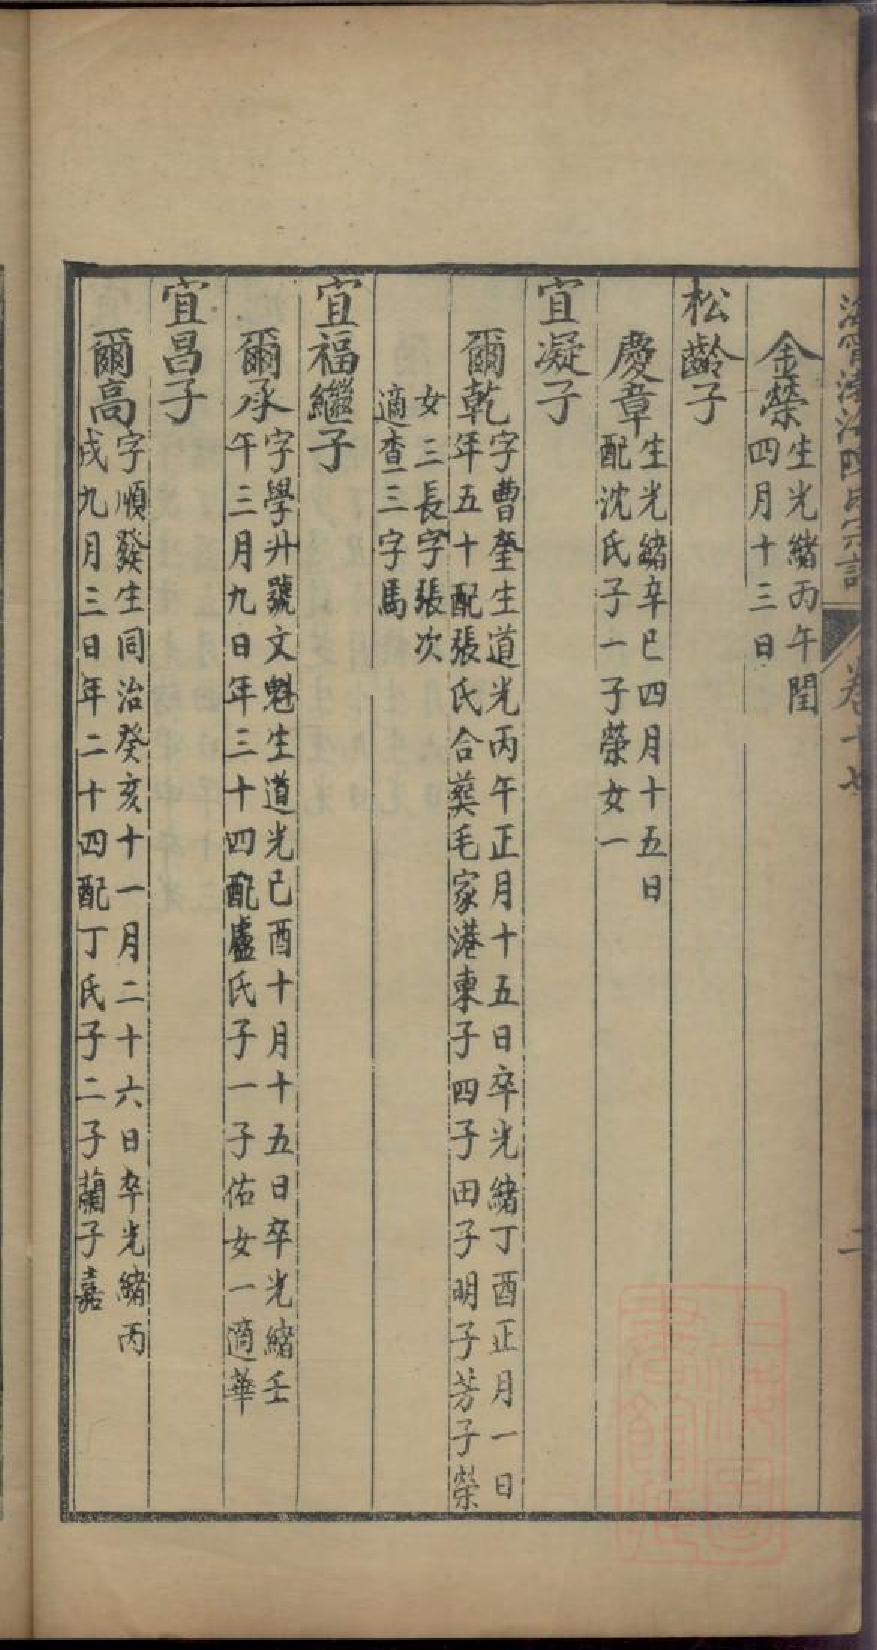 金榮
生光緒丙午閏
四月十三日
松齡子
慶章
生光緒辛巳四月十五日
配沈氏子一子榮女一
宜凝子
爾乾
字曹奎生道光丙午正月十五日卒光緒丁酉正月一日
年五十配張氏合葬毛家港東子四子田子明子芳子榮
女三長字張次
適查三字馬
宜福繼子
爾承
字學升號文魁生道光己酉十月十五日卒光緒壬
午三月九日年三十四配盧氏子一子佑女一適華
宜昌子
爾高
字順發生同治癸亥十一月二十六日卒光緒丙
戌九月三日年二十四配丁氏子二子蘭子嘉
卷十七
二